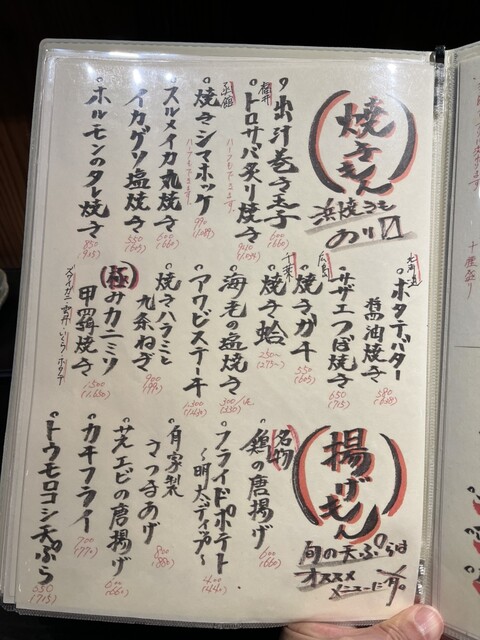 焼きもん
浜焼きも
のり〼
出汁巻き玉子
600
(660)
トロサバ炙り焼き
ハーフもできます。
函館
焼きシマホッケ
ハーフもできます。
スルメイカ丸焼き
600
(660)
イカゲソ塩焼き
550
(605)
ホルモンのタレ焼き
850
北海道
ホタテバター
醤油焼き
サザエつぼ焼き
650
(715)
広島
焼ガキ
550
(605)
千葉
焼き蛤
250〜
(275〜)
海老の塩焼き
300
(330)
アワビステーキ
焼きハラミと
九条ねぎ
900
(990)
極みカニミソ
甲羅焼き
1,500
(1,650)
揚げもん
旬の天ぷらは
オススメ
メニューに有。
名物
鶏の唐揚げ
600
(660)
フライドポテト
〜明太ディップ〜
400
(440)
自家製
さつまあげ
800
(880)
芝エビの唐揚げ
600
(660)
カキフライ
700
(770)
トウモロコシ天ぷら
650
(715)